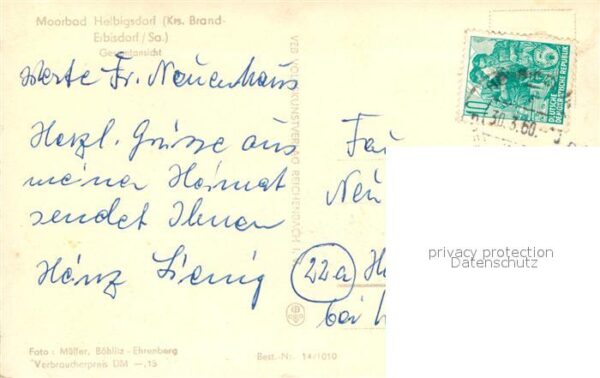 Moorbad Helbigsdorf (Krs. Brand-
Erbisdorf/Sa.)
Gesamtansicht
Werte Fr. Neuenhaus
Herzl. Grüsse aus
meiner Heimat
sendet Ihnen
Heinz Lienig
VEB VOLKSKUNSTVERLAG REICHENBACH
10
DEUTSCHE
DEMOKRATISCHE REPUBLIK
30.3.60.
Neu
22a
bei
privacy protection
Datenschutz
Foto: Müller, Böhlitz-Ehrenberg
Verbraucherpreis DM —,15
Best.-Nr. 14/1010